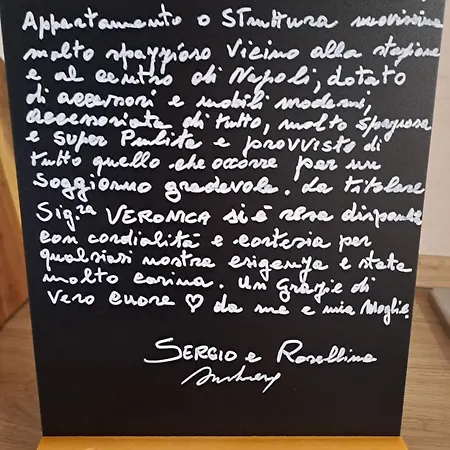 Appartamento o STruttura nuovissima
molto spazzioso Vicino alla stazione
e al centro di Napoli, dotato
di accessori e mobili moderni,
accessoriata di tutto, molto spaziosa
e super Pulita e provvisto di
tutto quello che occorre per un
Soggiorno gradevole. La titolare
Sig.ra VERONICA si è resa disponibile
con cordialità e cortesia per
qualsiasi nostra esigenza e stata
molto carina. Un grazie di
vero cuore ♡ da me e mia Moglie.
SERGIO e Rosellina